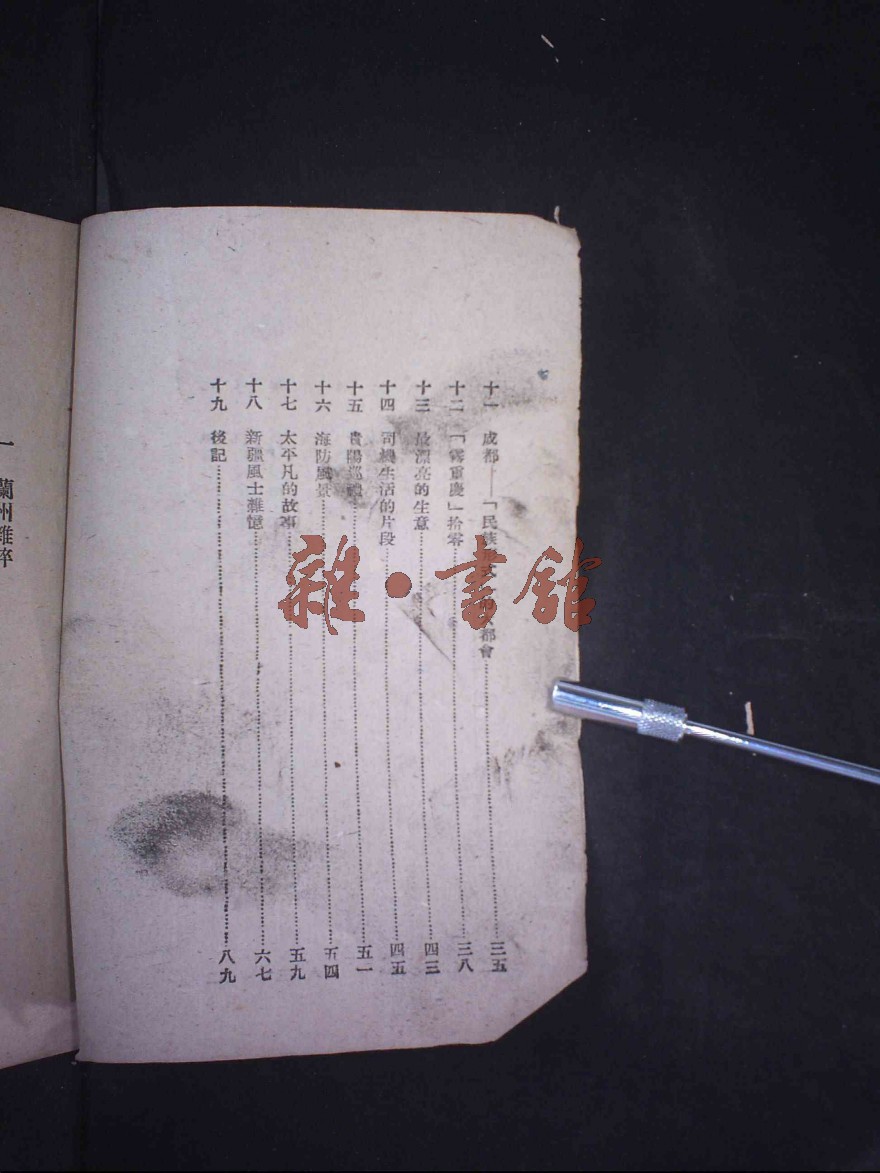 十一 成都——「民族式都會……三五
十二 「霧重慶」拾零……三八
十三 最漂亮的生意……四三
十四 司機生活的片段……四五
十五 貴陽巡禮……五一
十六 海防風景……五四
十七 太平凡的故事……五九
十八 新疆風土雜憶……六七
十九 後記……八九
一 蘭州雜碎
雜·書館